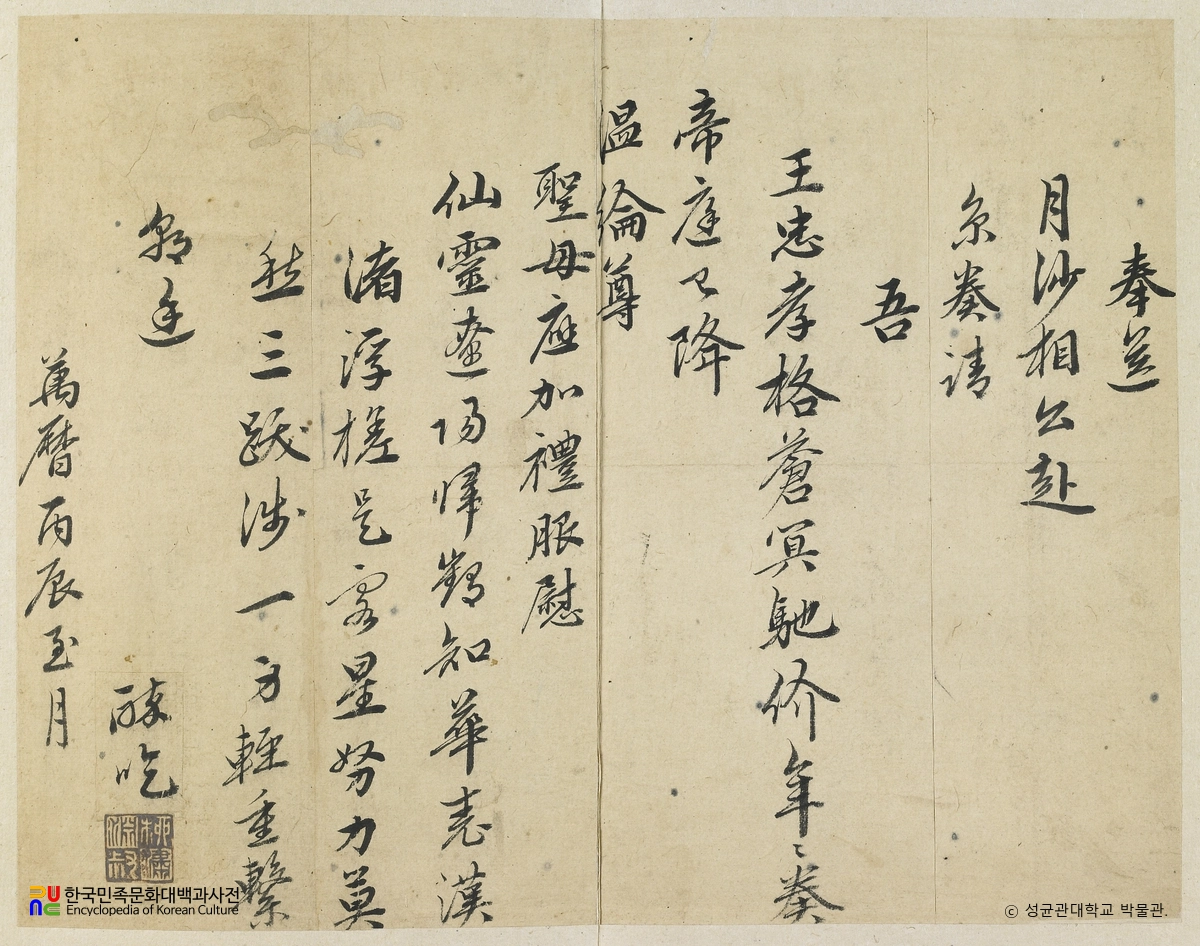 奉送
月沙相公赴
京奏請
吾
王忠孝格蒼冥馳价年〻奏
帝庭已降
温綸尊
聖母應加禮服慰
仙靈遼陽歸鶴知華表漢
渚浮槎是客星努力莫
愁三跋涉一方輕重繫
朝廷
醉吃
萬曆丙辰至月
한국민족문화대백과사전
Encyclopedia of Korean Culture
ⓒ 성균관대학교 박물관.